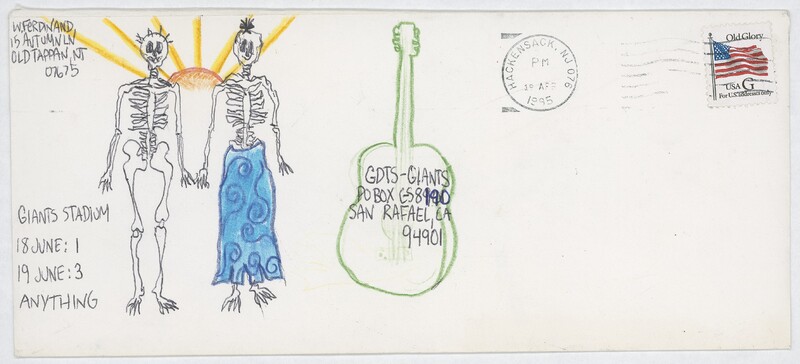 W. FERDINAND
15 AUTUMN LN
OLD TAPPAN, NJ
07675
GIANTS STADIUM
18 JUNE: 1
19 JUNE: 3
ANYTHING
GDTS-GIANTS
PO BOX GS8190
SAN RAFAEL, CA
94901
HACKENSACK, NJ 076
PM
APR
1995
Old Glory
USA G
For U.S. addresses only